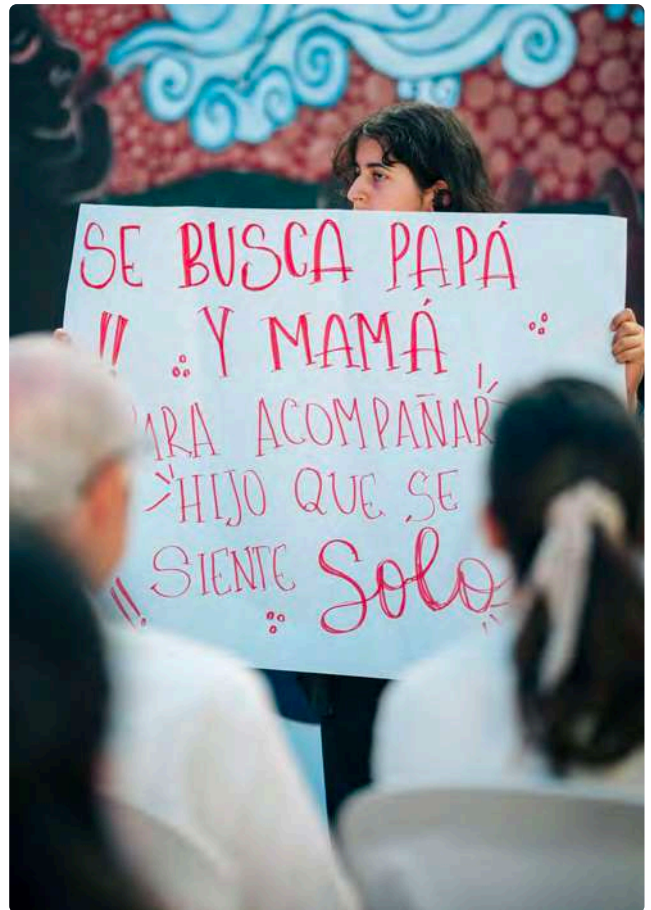 SE BUSCA PAPÁ
!! Y MAMÁ
ARA ACOMPAÑAR
HIJO QUE SE
!! SIENTE Solo